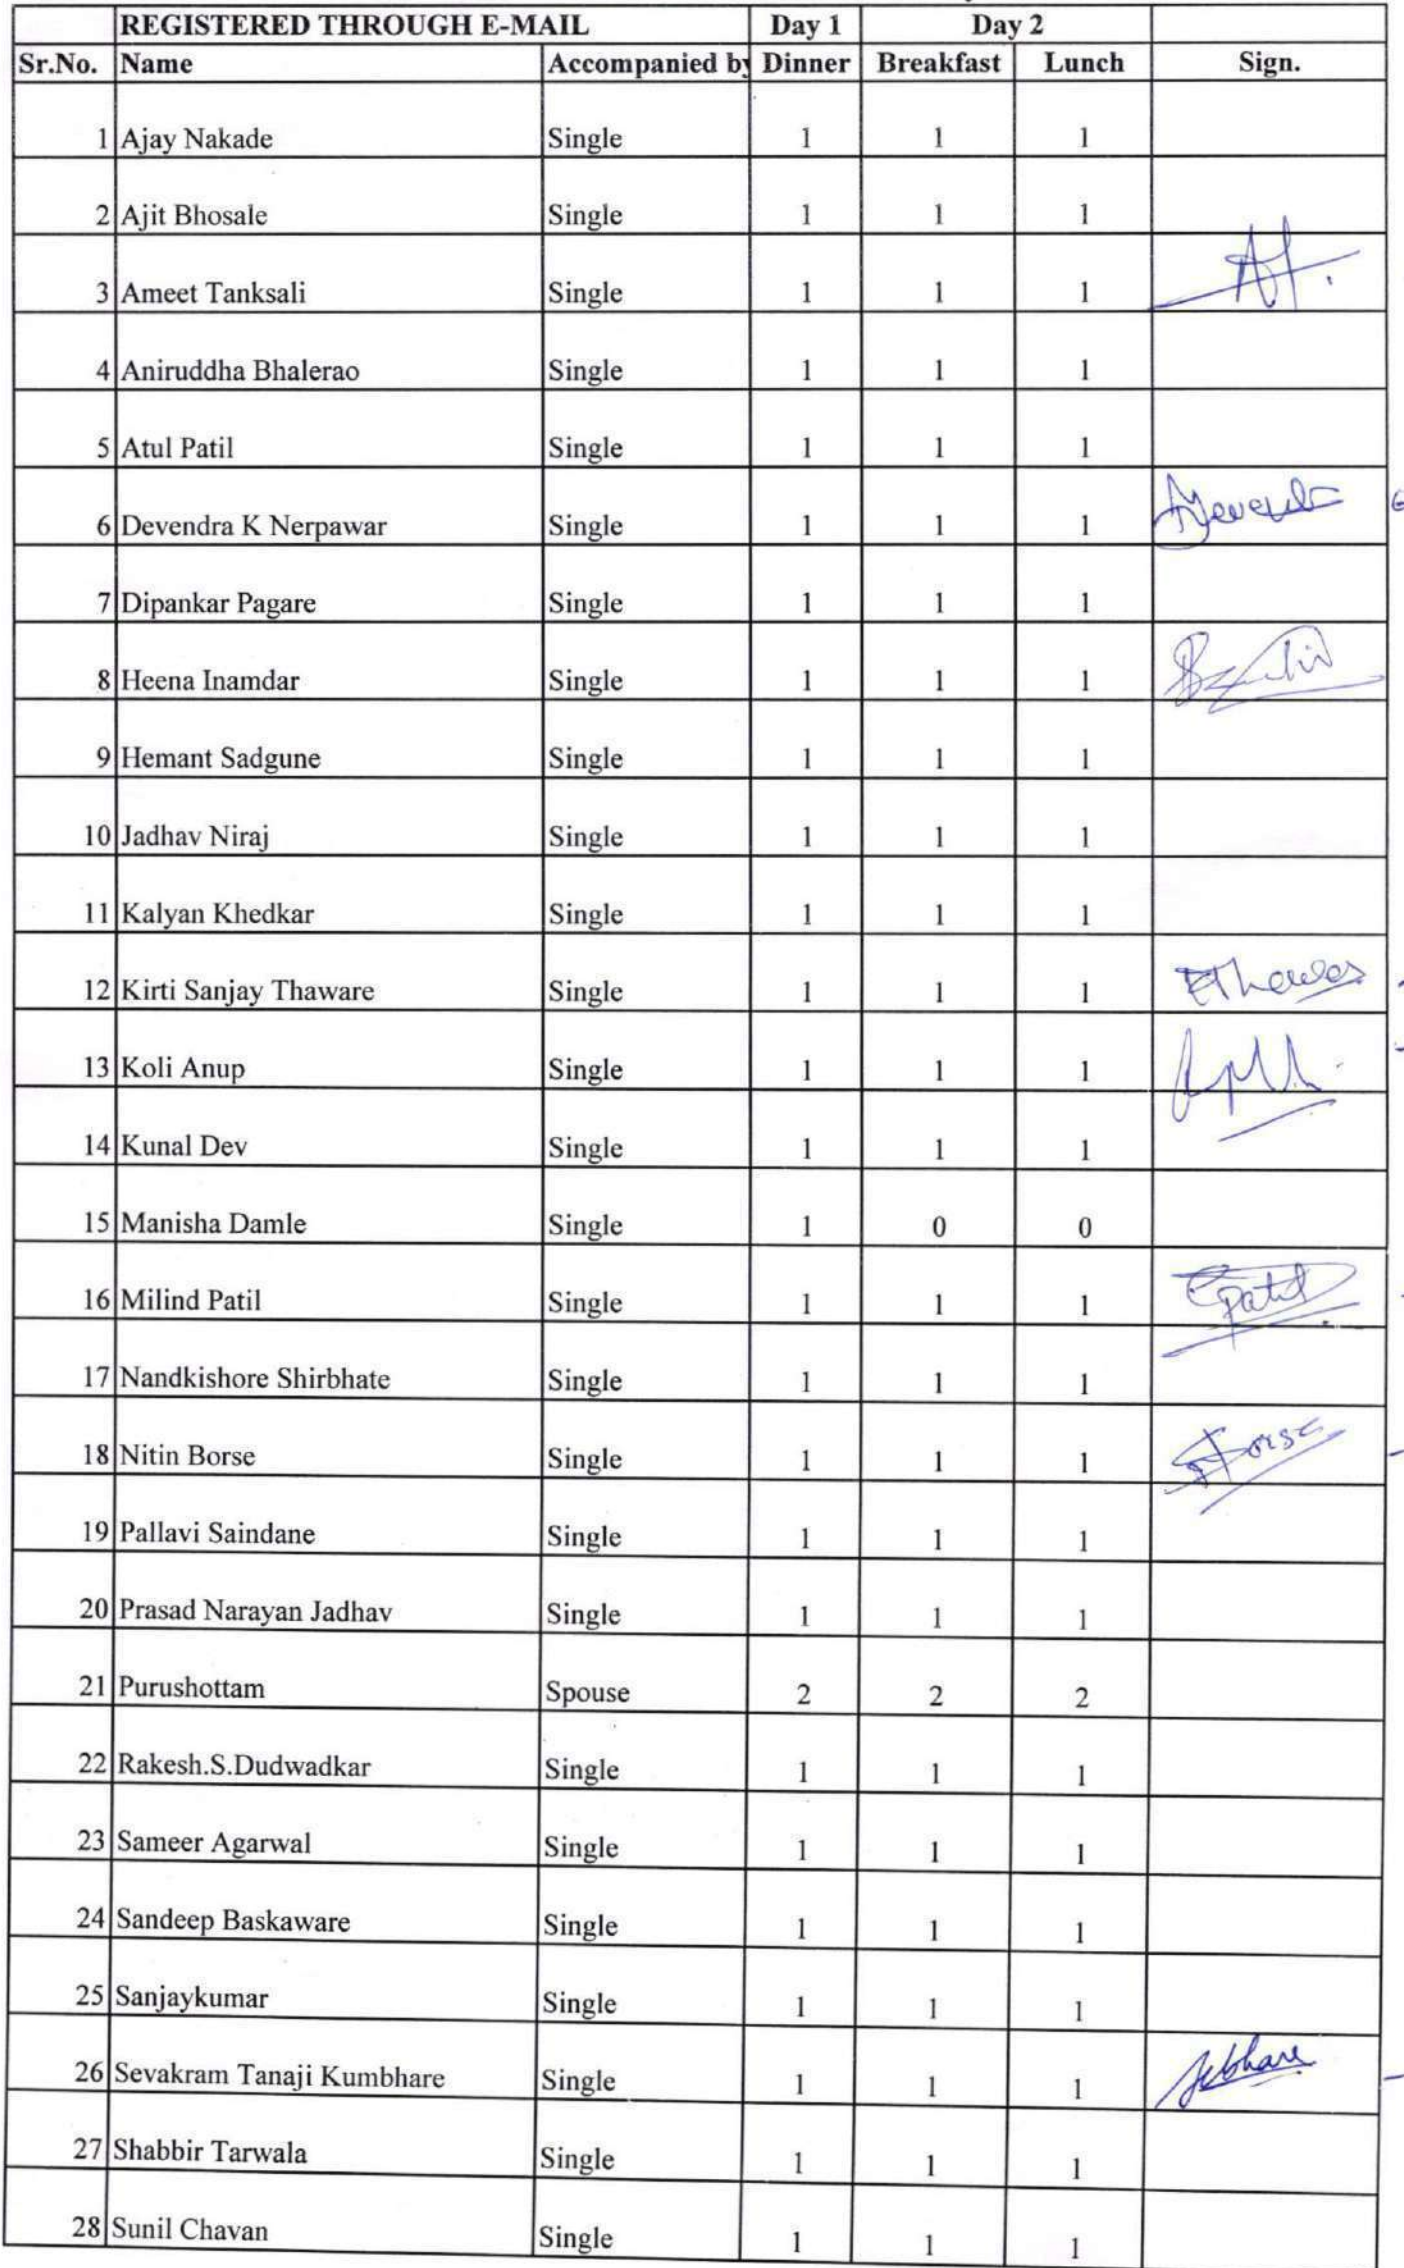 REGISTERED THROUGH E-MAIL Day 1 Day 2
Sr.No. Name Accompanied by Dinner Breakfast Lunch Sign.
1 Ajay Nakade Single 1 1 1
2 Ajit Bhosale Single 1 1 1
3 Ameet Tanksali Single 1 1 1
4 Aniruddha Bhalerao Single 1 1 1
5 Atul Patil Single 1 1 1
6 Devendra K Nerpawar Single 1 1 1
7 Dipankar Pagare Single 1 1 1
8 Heena Inamdar Single 1 1 1
9 Hemant Sadgune Single 1 1 1
10 Jadhav Niraj Single 1 1 1
11 Kalyan Khedkar Single 1 1 1
12 Kirti Sanjay Thaware Single 1 1 1
13 Koli Anup Single 1 1 1
14 Kunal Dev Single 1 1 1
15 Manisha Damle Single 1 0 0
16 Milind Patil Single 1 1 1
17 Nandkishore Shirbhate Single 1 1 1
18 Nitin Borse Single 1 1 1
19 Pallavi Saindane Single 1 1 1
20 Prasad Narayan Jadhav Single 1 1 1
21 Purushottam Spouse 2 2 2
22 Rakesh.S.Dudwadkar Single 1 1 1
23 Sameer Agarwal Single 1 1 1
24 Sandeep Baskaware Single 1 1 1
25 Sanjaykumar Single 1 1 1
26 Sevakram Tanaji Kumbhare Single 1 1 1
27 Shabbir Tarwala Single 1 1 1
28 Sunil Chavan Single 1 1 1